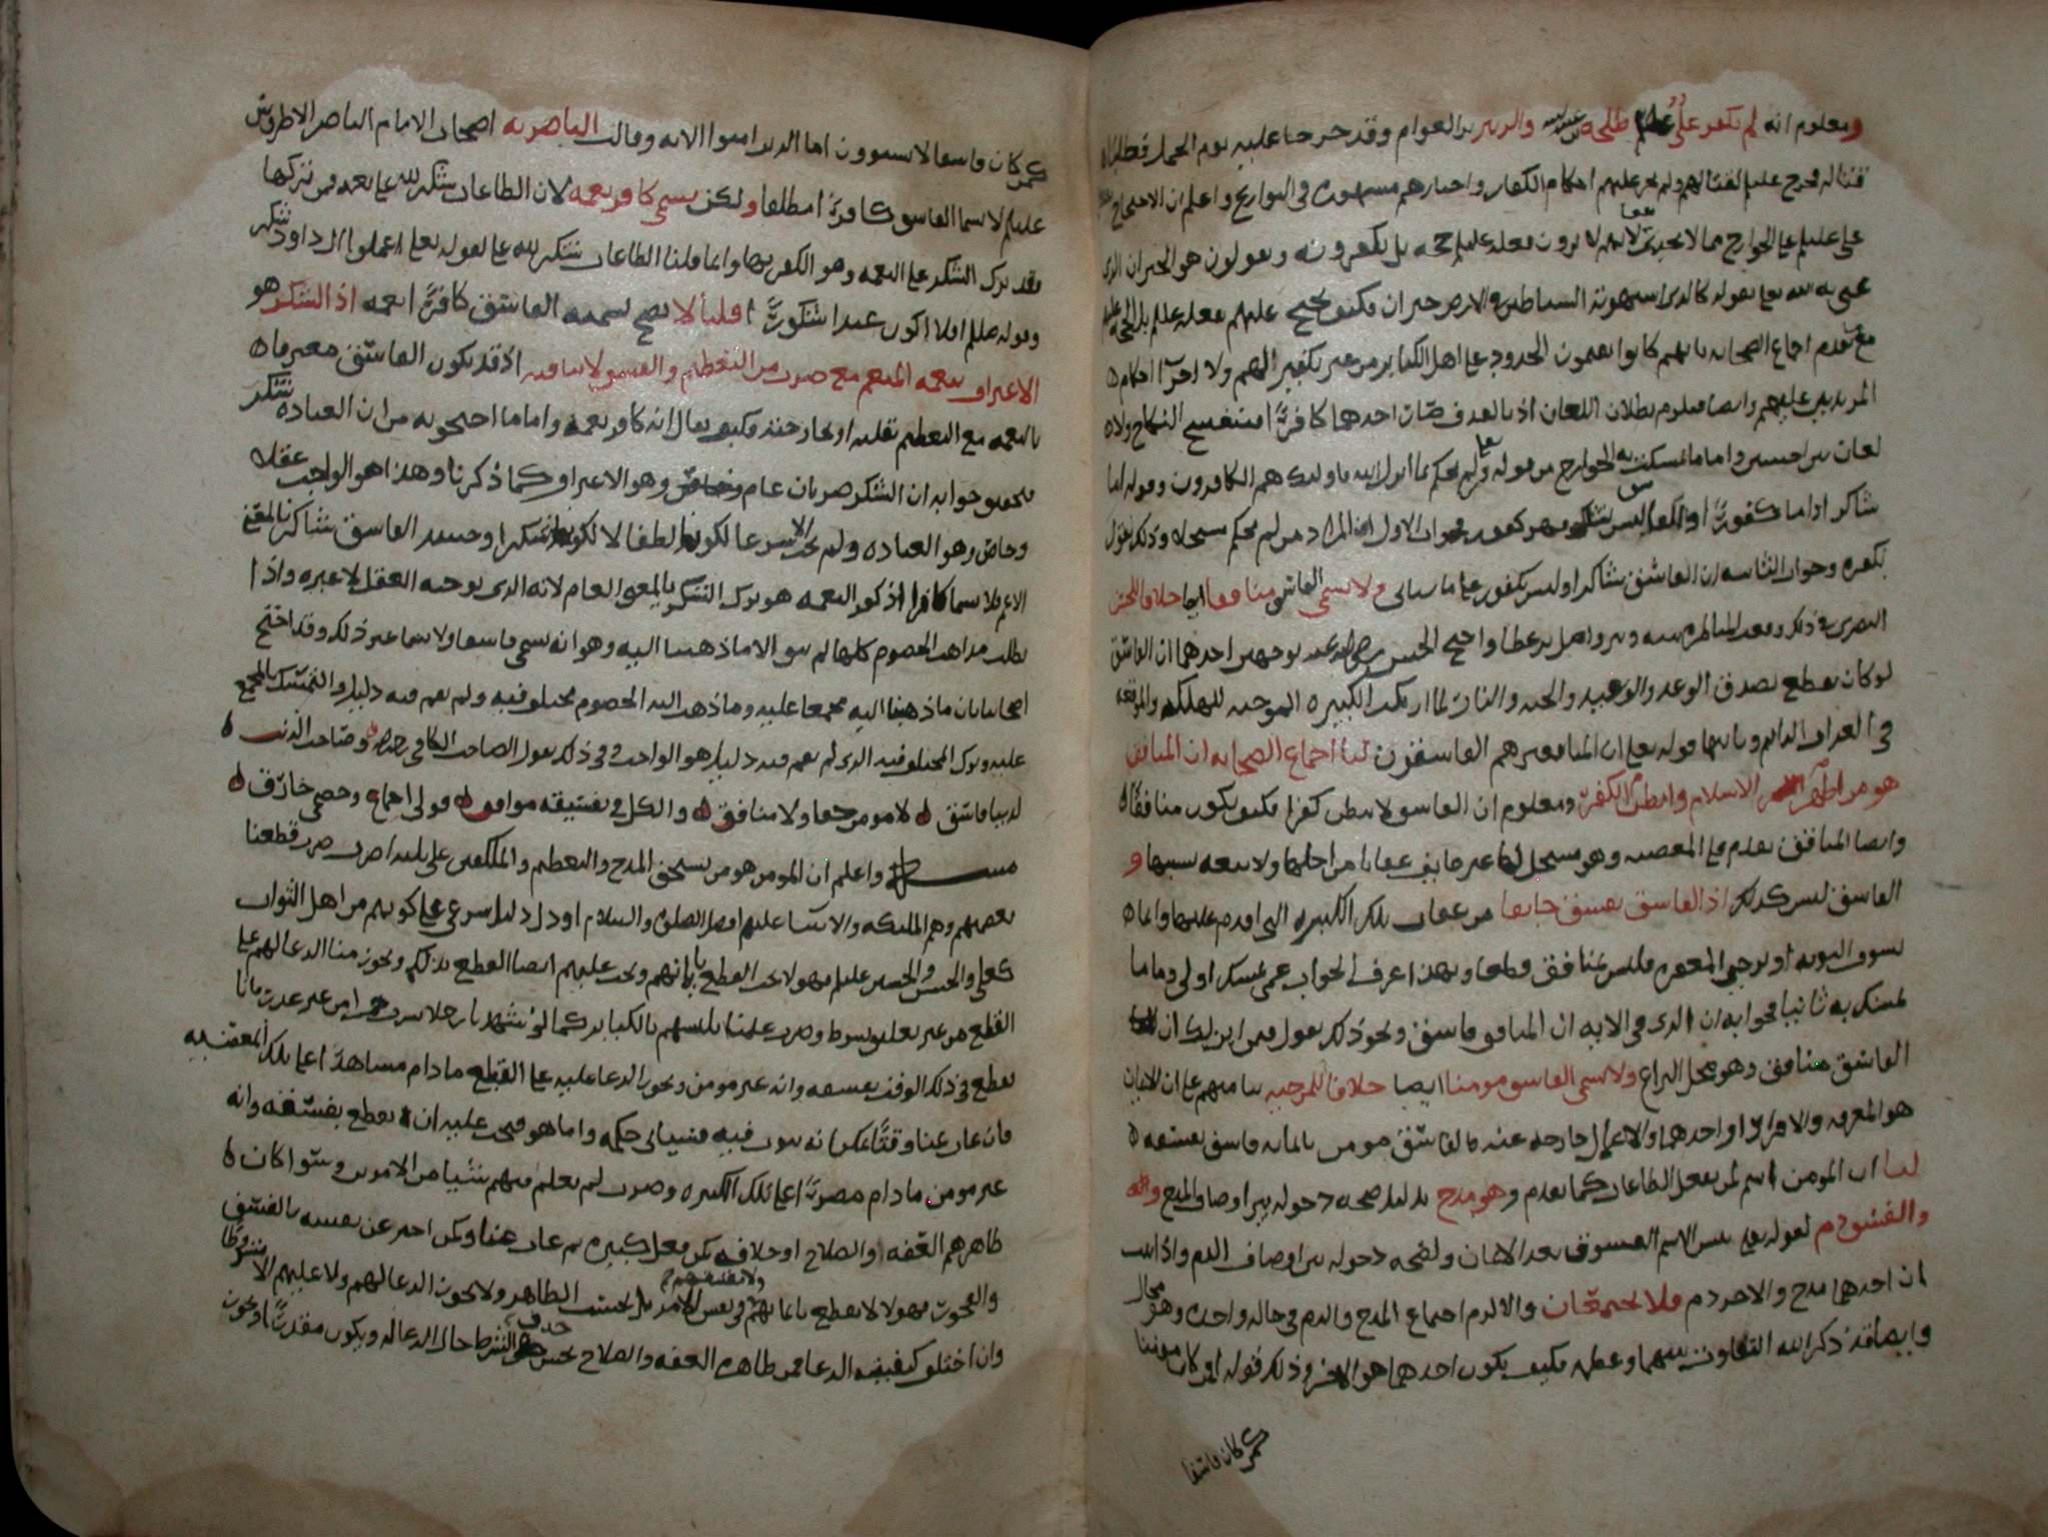 ومعلوم انه لم يكفر علي عليلم طلحه والزبير بن العوام وقد خرجا عليه يوم الجمل وطلبا
قتاله فخرج عليلم لقتالهم ولم يجر عليهم احكام الكفار واخبارهم مشهورة في التواريخ واعلم ان الاحتجاج
على عليلم على الخوارج مما لا يجدي نفعا لانهم لا يرون فعله عليلم حجه بل يكفرونه ويقولون هو الحيران الذي
عنى به الله تعالى بقوله كالذي استهوته الشياطين في الارض حيران فكيف يحتج عليهم بفعله عليلم بل الحجة عليهم
مع تقدم اجماع الصحابه بانهم كانوا يقيمون الحدود على اهل الكبائر من غير تكفير لهم ولا اجرآء احكام
المرتدين عليهم وايضا فيلزم بطلان اللعان اذ بالقذف صار احدهما كافرًا فينفسخ النكاح ولا
لعان بين اجنبيين واما ما تمسكت به الخوارج من قوله تعالى ومن لم يحكم بما انزل الله فاولئك هم الكافرون وقوله اما
شاكرا واما كفورًا والفاسق ليس بشاكر فهو كفور فجواب الاول ان المراد من لم يحكم مستحلا وذلك نقول
بكفره وجواب الثانيه ان الفاسق شاكرا وليس بكفور على ما سياتي ولا يسمى الفاسق منافقا ايضا خلافا للحسن
البصري في ذلك وقعت المناظره بينه وبين واصل بن عطا واحتج الحسن رضي الله عنه بوجهين احدهما ان الفاسق
لو كان يقطع بصدق الوعد والوعيد والجنه والنار لما ارتكب الكبيره الموجبه للهلكه والموقعه
في العذاب الدايم وثانيهما قوله تعالى ان المنافقين هم الفاسقون لنا اجماع الصحابه ان المنافق
هو من اظهر الاسلام وابطن الكفر ومعلوم ان الفاسق لا يبطن كفرا فكيف يكون منافقًا
وايضا المنافق يقدم على المعصيه وهو مستحل لها غير خايف عقابا من اجلها ولا تبعه بسببها و
الفاسق ليس كذلك اذ الفاسق يفسق خايفا من عقاب تلك الكبيره التي اقدم عليها وانما
يسوف التوبه او يرجي المغفره فليس بمنافق قطعا وبهذا اعرف الجواب عمى تمسك اولى واما ما
تمسك به ثانيا فجوابه ان الذي في الايه ان المنافق فاسق ونحو ذلك نقول فمن اين لك ان
الفاسق منافق وهو محل النزاع ولا يسمى الفاسق مومنا ايضا خلافا للمرجيه بنا منهم على ان الايمان
هو المعرفه والاقرار او احدهما والاعمال خارجه عنه فالفاسق مومن بايمانه فاسق بفسقه
لنا ان المومن اسم لمن يفعل الطاعات كما تقدم وهو مدح بدليل صحه دخوله بين اوصاف المدح
والفسق ذم لقوله تعالى بئس الاسم الفسوق بعد الايمان ولصحه دخوله بين اوصاف الذم واذا ثبت
ان احدهما مدح والاخر ذم فلا يجتمعان والا لزم اجتماع المدح والذم في حاله واحده وهو محال
وايضا قد ذكر الله التفاوت بينهما وعطف فكيف يكون احدهما هو الاخر وذلك قوله افمن كان مومنا
كمن كان فاسقا
كمن كان فاسقا لا يستوون اما الذين امنوا الايه وقالت الناصريه اصحاب الامام الناصر الاطروش
عليلم لا يسما الفاسق كافرًا مطلقا ولكن يسمى كافر نعمه لان الطاعات شكر لله على نعمه فمن تركها
فقد ترك الشكر على النعمه وهو الكفر بها وانما قلنا الطاعات شكر لله تعالى لقوله تعالى اعملوا ال داود شكر
وقوله صللم افلا اكون عبدا شكورًا قلنا لا يصح تسميه الفاسق كافرًا نعمه اذ الشكر هو
الاعتراف بنعمه المنعم مع ضرب من التعظيم والفسق لا ينافيه اذ قد يكون الفاسق معترفا
بالنعمه مع التعظيم بقلبه او بجارحته فكيف يقال انه كافر نعمه واما ما احتجوا به من ان العباده شكر
فنقول جوابه ان الشكر ضربان عام وخاص وهو الاعتراف كما ذكرنا وهذا هو الواجب عقلا
وخاص وهو العباده ولم تجب الا شرعا لكونها لطفا لا لكونها شكرا وحينئذ الفاسق شاكر بالمعنى
الاعم فلا يسما كافرا اذ كفر النعمه هو ترك الشكر بالمعنى العام لانه الذي يوجبه العقل لا غيره واذا
بطلت مذاهب الخصوم كلها لم يبق الا ما ذهبنا اليه وهو انه يسمى فاسقا ولا يسما غير ذلك وقد احتج
اصحابنا بان ما ذهبنا اليه مجمعا عليه وما ذهب اليه الخصوم مختلف فيه ولم يقم فيه دليل والتمسك بالمجمع
عليه وترك المختلف فيه الذي لم يقم فيه دليل هو الواجب وفي ذلك يقول الصاحب الكافي رحمه الله وصاحب الذنب
لدينا فاسق لا مومن حقا ولا منافق والكل في تفسيقه موافق قولي اجماع وخصمي خارق
مسئله واعلم ان المومن هو من يستحق المدح والتعظيم والمكلفين على ثلثه اضرب ضرب قطعنا
بعصمتهم وهم المليكه والانبيا عليهم افضل الصلوة والسلام او دل دليل شرعي على كونهم من اهل الثواب
كعلي والحسن والحسين عليلم فهولا يجب القطع بايمانهم ويجب عليهم ايضا القطع بذلك ويجوز منا الدعا لهم على
القطع من غير تعليق بشرط وضرب علمنا تلبسهم بالكبائر كما لو نشهد بان رجلا يشرب خمرا من غير عذر فانا
نقطع في ذلك الوقت بفسقه وانه غير مومن ويجوز الدعا عليه على القطع ما دام مشاهدًا على تلك المعصيه
فان غاب عنا وقتًا يمكن انه يتوب فيه فسياتي حكمه واما هو فيجب عليه ان يقطع بفسقه وانه
غير مومن ما دام مصرًا على تلك الكبيره وضرب لم نعلم منهم شيا من الامور وسوا كان
ظاهرهم العفه والصلاح او خلافه كمن فعل كبيره ثم غاب عنا وكمن اخبر عن نفسه بالفسق
والفجور فهولا لا نقطع بايمانهم ولا بفسقهم في نفس الامر بل بحسب الظاهر ولا يجوز الدعا لهم ولا عليهم الا مشروطا
وان اختلف كيفيه الدعا فمن ظاهره العفه والصلاح يحسن حذف الشرط حال الدعا له ويكون مقدرًا او يجوز